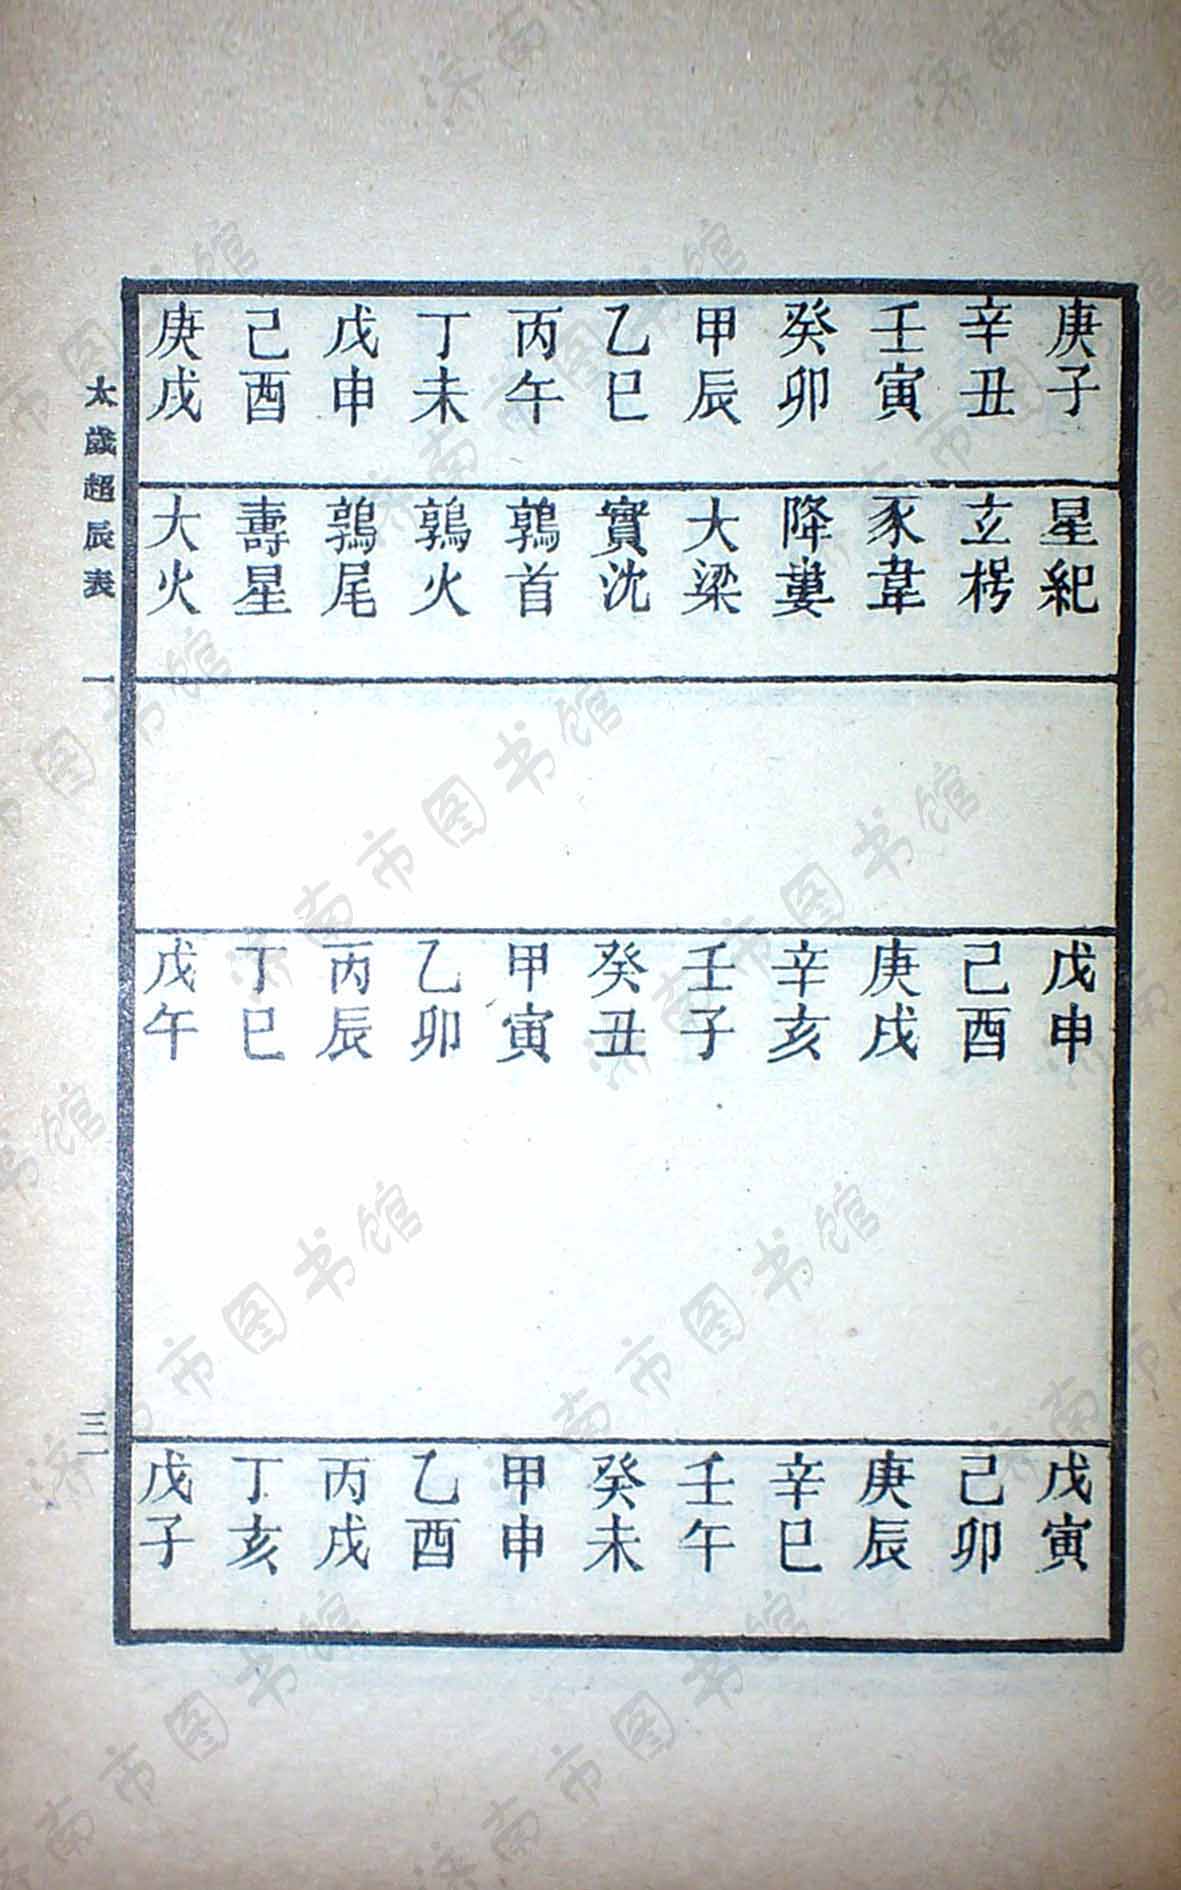 庚子 辛丑 壬寅 癸卯 甲辰 乙巳 丙午 丁未 戊申 己酉 庚戌
星紀 立枵 豕韋 降婁 大梁 實沈 鶉首 鶉火 鶉尾 壽星 大火
戊申 己酉 庚戌 辛亥 壬子 癸丑 甲寅 乙卯 丙辰 丁巳 戊午
戊寅 己卯 庚辰 辛巳 壬午 癸未 甲申 乙酉 丙戌 丁亥 戊子
太歲超辰表 一
三一
济南市图书馆